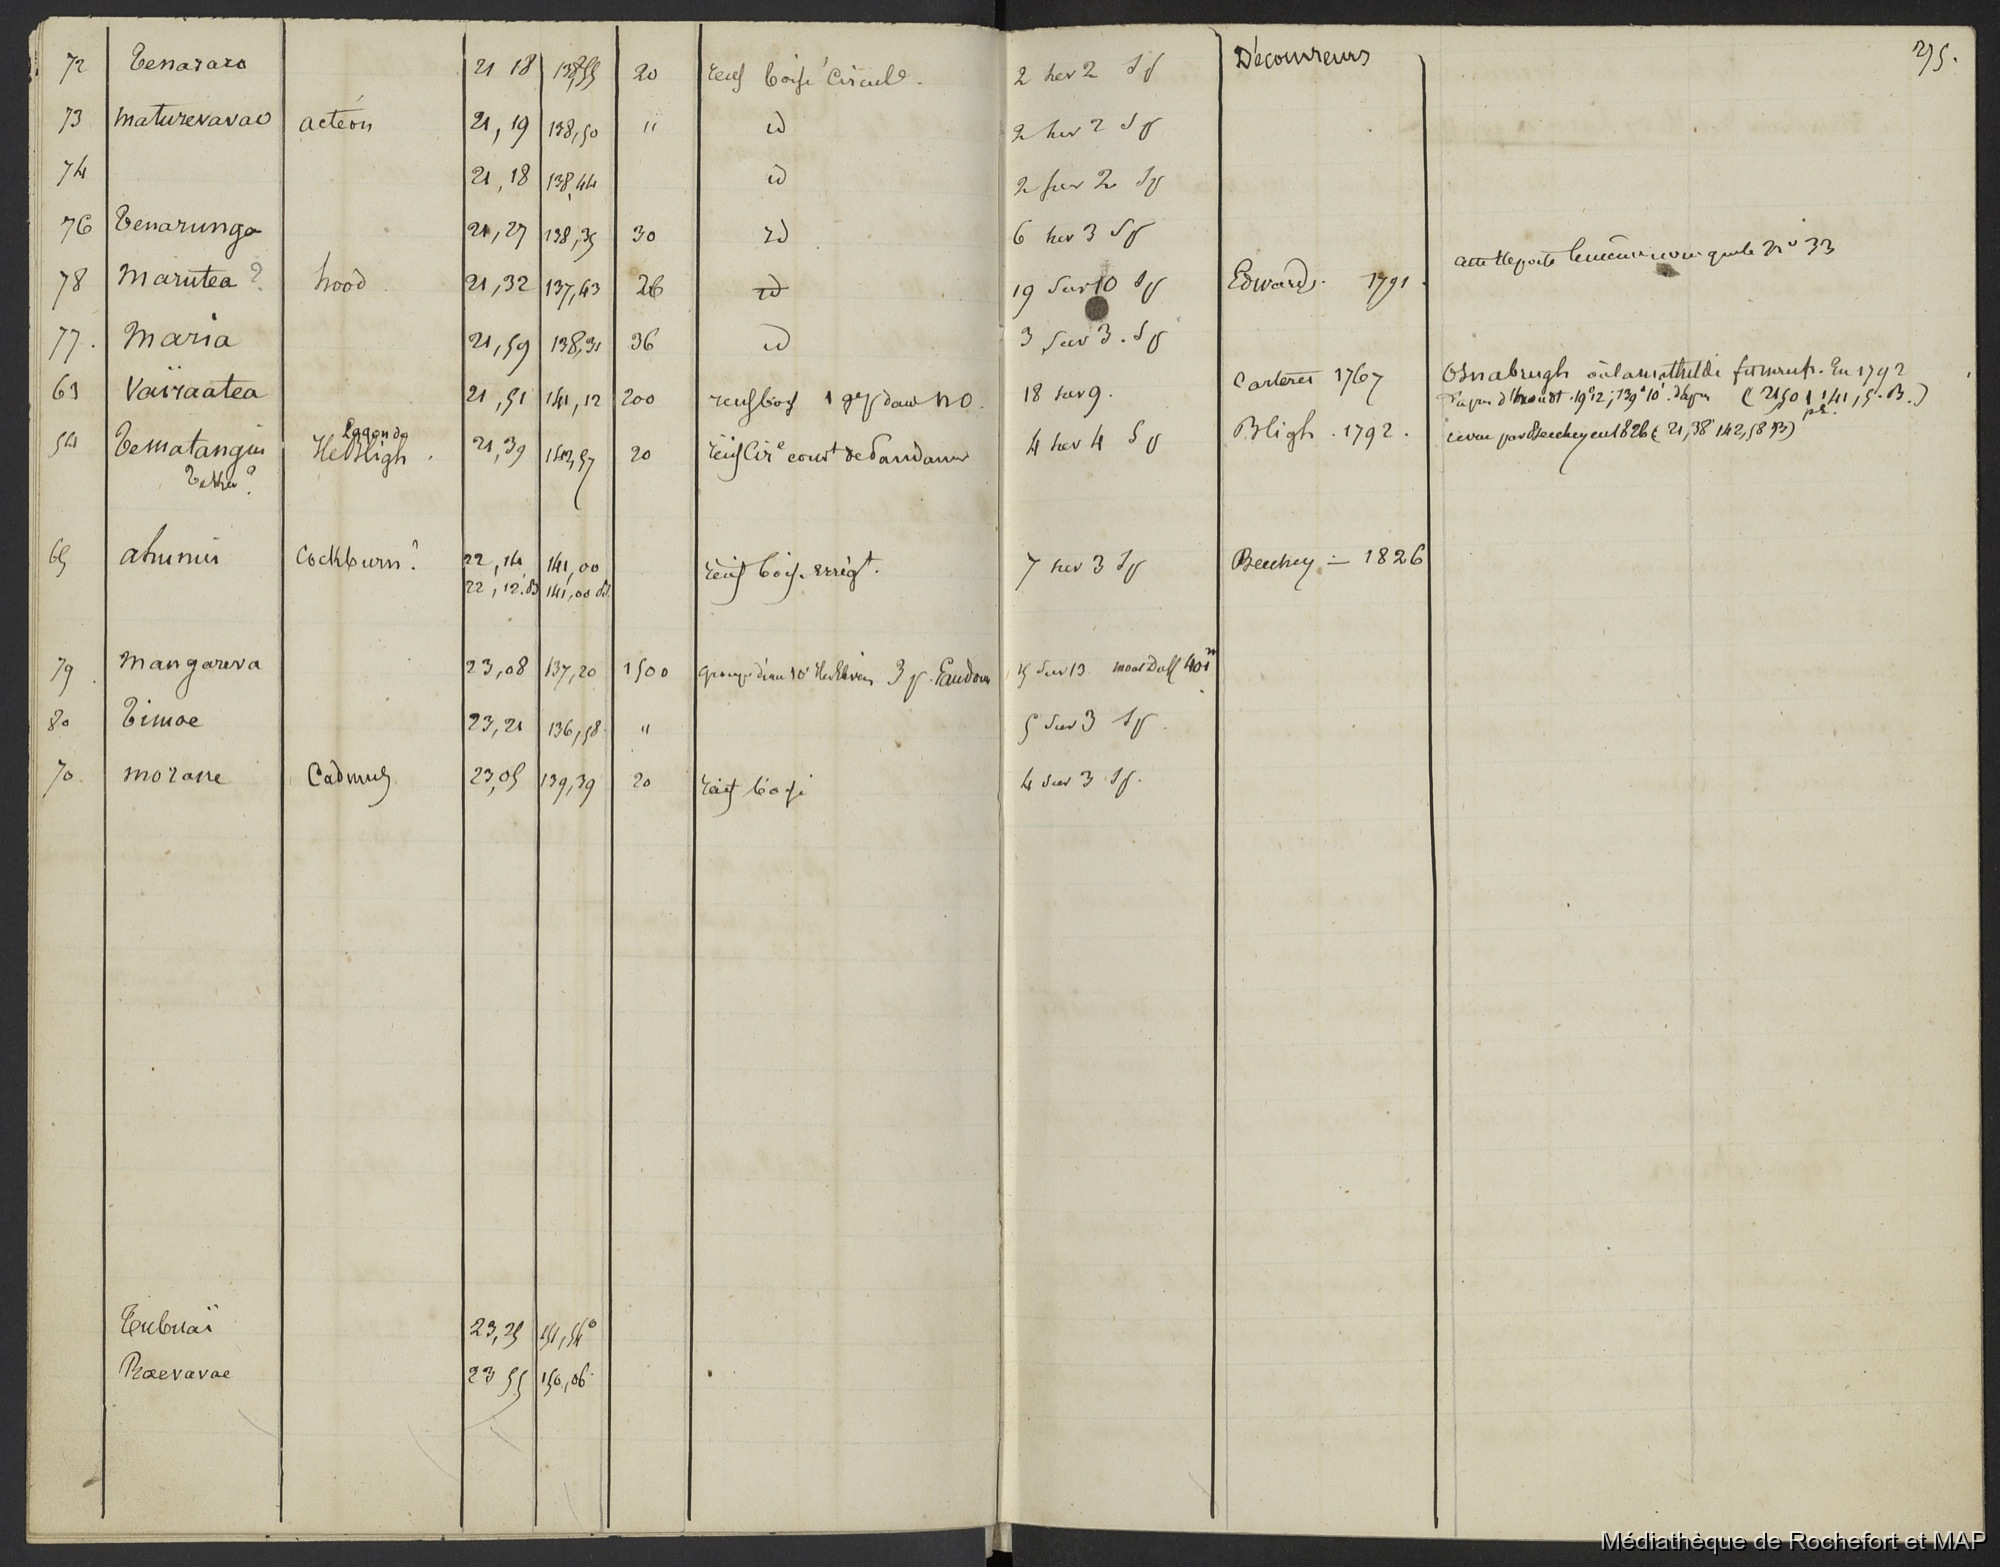 275.
Découvreurs
72 Tenararo 21 18 138,55 20 récif boisé circul. 2 sur 2 S p
73 Maturevavao actéon 21, 19 138,50 " id 2 sur 2 S p
74 21, 18 138,44 id 2 sur 2 S p
76 Tenarunga 21, 27 138,35 30 id 6 sur 3 S p
78 Marutea ? hood 21, 32 137,43 26 id 19 sur 10 S p Edwards. 1791. cette île porte le même nom que le No 33
77. Maria 21, 59 138,31 36 id 3 sur 3. S p
63 Vaïraatea 21, 51 141, 12 200 récif bois 1 p dans NO. 18 sur 9. Carteret 1767 Osnabrugh où la mathilde fit nauf. En 1792
19° 12', 139° 10' (2150 141, 5. B.)
54 Tematangui Lagon de 21, 39 142,57 20 récif Circ couvt de Pandanus 4 sur 4 S p Bligh. 1792. revue par Beechey en 1826 (21, 38 142, 58 B)
He Bligh.
65 ahunui Cockburn? 22, 14 141, 00 récif bois. 7 sur 3 S p Beechey — 1826
22, 12. B 141, 00 B.
79 Mangareva 23, 08 137, 20 1500 groupe d'eau 10 3 p. Eau douce 15 sur 13 mont Duff 401m
80 Timoe 23, 21 136, 58 " 5 sur 3 S p
70 morane Cadmus 23, 05 139, 39 20 récif boisé 4 sur 3 S p.
Tubuaï 23, 25 151, 54
Raevavae 23 55 150, 06
Médiathèque de Rochefort et MAP